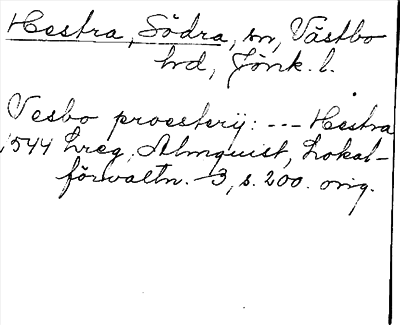 Hestra, Södra, sn, Västbo
hd, Jönk. l.
Vesbo prosterij: --- Hestra
1544 Lreg. Almquist, Lokal-
förvaltn. 3, s. 200. orig.